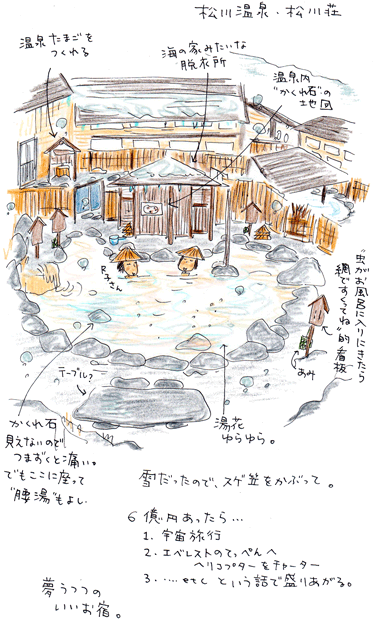 松川温泉・松川荘
温泉たまごを
つくれる
海の家みたいな
脱衣所
温泉内
"かくれ石"の
地図
R子さん
"虫がお風呂に入りにきたら
網ですくってね"的看板
あみ
テーブル?
かくれ石
見えないので
つまずくと痛い。
でもここに座って
"腰湯"もよし
湯花
ゆらゆら。
雪だったので、スゲ笠をかぶって。
6億円あったら…
1. 宇宙旅行
2. エベレストのてっぺんへ
ヘリコプターをチャーター
3. ‥‥etc という話で盛りあがる。
夢うつつの
いいお宿。